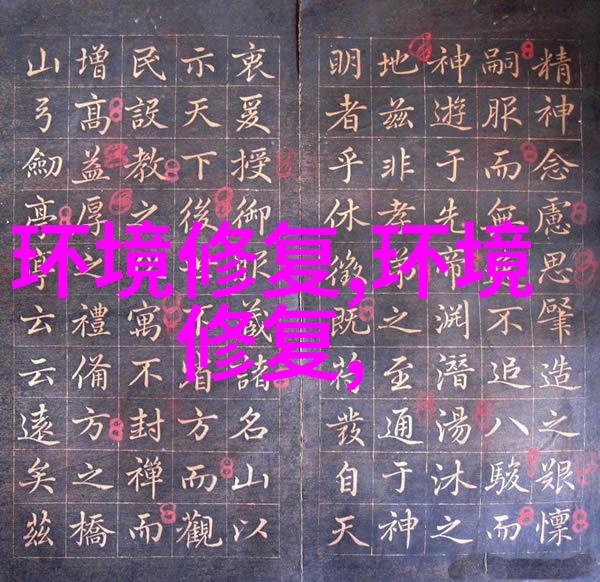 环境修复,环境
修复,
精神念慮思肇造之艱懍
嗣服而無不追八駿而
神遊于先帝渊潛湯沐之
地茲非孝之至通于神
明者乎休徵既符發自天
衷爰授御服藏諸名山以
示天下後不省方而觀
民設教之寓不封禪而
增高益厚之禮備方之橋
山弓劒亭亭云云遠矣茲